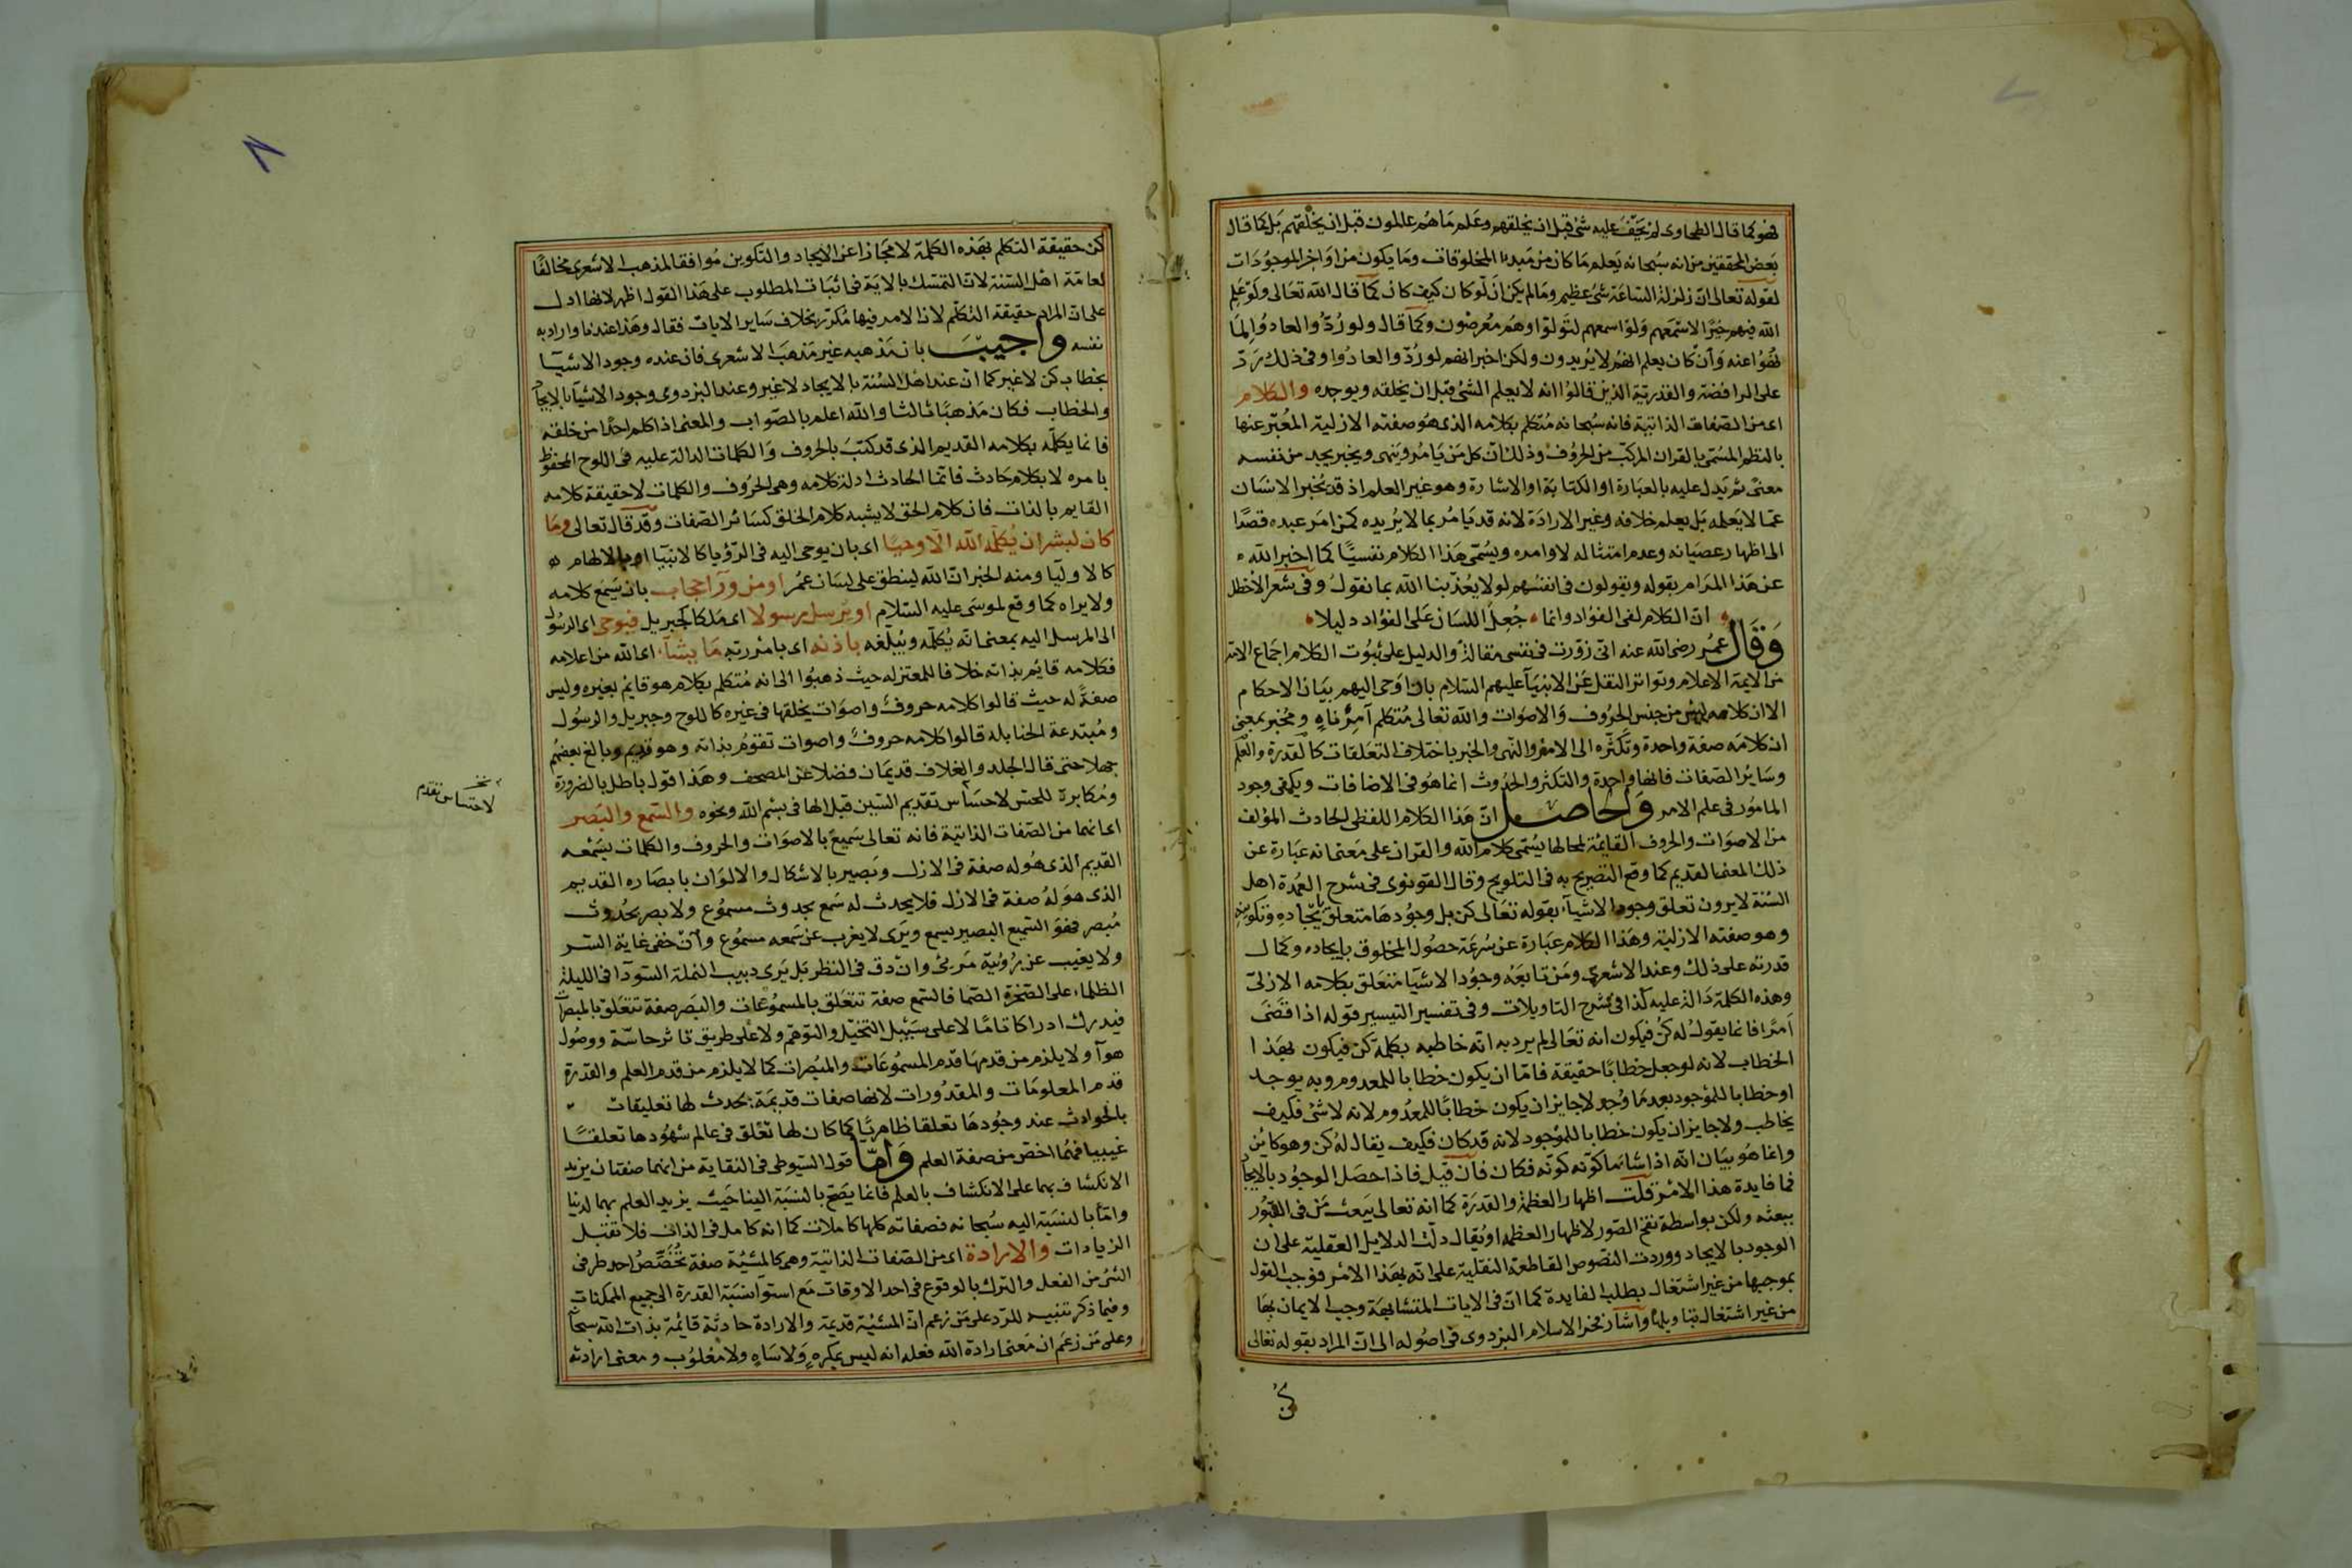 فهو كما قال الطحاوى لم يخف عليه شئ قبل ان يخلقهم وعلم ما هم عاملون قبل ان يخلقهم بل كما قال
بعض المحققين من انه سبحانه يعلم ما كان من مبدىا المخلوقات وما يكون من اواخر الموجودات
لقوله تعالى ان زلزلة الساعة شئ عظيم وما لم يكن ان لو كان كيف كان كما قال الله تعالى ولو علم
الله فيهم خيرا لاسمعهم ولو اسمعهم لتولوا وهم معرضون وكما قال ولو ردوا لعادوا لما
نهوا عنه وان كان يعلم انهم لا يريدون ولكن اخبر انهم لو ردوا لعادوا وفى ذلك رد
على الرافضة والقدرية الذين قالوا انه لا يعلم الشئ قبل ان يخلقه ويوجده والكلام
اى من الصفات الذاتية فانه سبحانه متكلم بكلامه الذى هو صفته الازلية المعبر عنها
بالنظم المسمى بالقران المركب من الحروف وذلك ان كل من يامر وينهى ويخبر يجد من نفسه
معنى ثم يدل عليه بالعبارة او الكتابة او الاشارة وهو غير العلم اذ قد يخبر الانسان
عما لا يعلمه بل يعلم خلافه وغير الارادة لانه قد يامر بما لا يريده كمن امر عبده قصدا
الى اظهار عصيانه وعدم امتثاله لاوامره ويسمى هذا الكلام نفسيا كما اخبر الله
عن هذا المرام بقوله ويقولون فى انفسهم لولا يعذبنا الله بما نقول وفى شعر الاخطل
ان الكلام لفى الفؤاد وانما جعل اللسان على الفؤاد دليلا
وقال عمر رضى الله عنه انى زورت فى نفسى مقالة والدليل على ثبوت الكلام اجماع الامة
من الايمة الاعلام وتواتر النقل عن الانبيآ عليهم السلام بانه اوحى اليهم بيان الاحكام
الا ان كلامه ليس من جنس الحروف والاصوات والله تعالى متكلم آمر ناه ومخبر بمعنى
ان كلامه صفة واحدة وتكثره الى الامر والنهى والخبر باختلاف التعلقات كالقدرة والعلم
وسائر الصفات فانها واحدة والتكثر والحدوث انما هو فى الاضافات ويكفى وجود
المامور فى علم الامر والحاصل ان هذا الكلام اللفظى الحادث المؤلف
من الاصوات والحروف القائمة لمحالها يسمى كلام الله والقران على معنى انه عبارة عن
ذلك المعنى القديم كما وقع التصريح به فى التلويح وقال القونوى فى شرح العمدة اهل
السنة لا يرون تعلق وجود الاشيآ بقوله تعالى كن بل وجودها متعلق بايجاده وتكوينه
وهو صفته الازلية وهذا الكلام عبارة عن سرعة حصول المخلوق بايجاده وكمال
قدرته على ذلك وعند الاشعرى ومن تابعه وجود الاشيآ متعلق بكلامه الازلى
وهذه الكلمة دالة عليه كذا فى شرح التاويلات وفى تفسير التيسير قوله اذا قضى
امرا فانما يقول له كن فيكون انه تعالى لم يرد به انه خاطبه بكلمة كن فيكون بهذا
الخطاب لانه لو جعل خطابا حقيقة فاما ان يكون خطابا للمعدوم وبه يوجد
او خطابا للموجود بعد ما وجد لا جايز ان يكون خطابا للمعدوم لانه لا شئ فكيف
يخاطب ولا جايز ان يكون خطابا للموجود لانه قد كان فكيف يقال له كن وهو كاين
وانما هو بيان انه اذا شا ما كونه كونه فكان فان قيل فاذا حصل الوجود بالايجاد
فما فايدة هذا الامر قلت اظهار العظمة والقدرة كما انه تعالى يبعث من فى القبور
ببعثه ولكن بواسطة نفخ الصور لاظهار العظمة او يقال دلت الدلايل العقلية على ان
الوجود بالايجاد ووردت النصوص القاطعة النقلية على انه بهذا الامر فوجب القول
بموجبها من غير اشتغال بطلب الفايدة كما ان فى الايات المتشابهة وجب الايمان بها
من غير اشتغال بتاويلها واشار فخر الاسلام البزدوى فى اصوله الى ان المراد بقوله تعالى
كن
كن حقيقة التكلم بهذه الكلمة لا مجازا عن الايجاد والتكوين موافقا لمذهب الاشعرى مخالفا
لعامة اهل السنة لان التمسك بالاية فى اثبات المطلوب على هذا القول اظهر لانها ادل
على ان المراد حقيقة التكلم لان الامر فيها مكرر بخلاف ساير الايات فقال وهذا عندنا واراد به
نفسه واجيب بان مذهبه غير مذهب الاشعرى فان عنده وجود الاشيآ
بخطاب كن لا غير كما ان عند اهل السنة بالايجاد لا غير وعند البزدوى وجود الاشيآ بالايجاد
والخطاب فكان مذهبا ثالثا والله اعلم بالصواب والمعنى اذا كلم احدا من خلقه
فانما يكلمه بكلامه القديم الذى قد كتب بالحروف والكلمات الدالة عليه فى اللوح المحفوظ
بامره لا بكلام حادث فانما الحادث ادلة كلامه وهى الحروف والكلمات لا حقيقة كلامه
القايم بالذات فان كلام الحق لا يشبه كلام الخلق كسائر الصفات وقد قال تعالى وما
كان لبشر ان يكلمه الله الا وحيا اى بان يوحى اليه فى الرؤيا كالانبيآ او بالالهام
كالاوليآ ومنه الخبر ان الله لينطق على لسان عمر او من ورآ حجاب بان يسمع كلامه
ولا يراه كما وقع لموسى عليه السلام او يرسل رسولا اى ملكا كجبريل فيوحى اى الرسول
الى المرسل اليه بمعنى انه يكلمه ويبلغه باذنه اى بامر ربه ما يشآ اى الله من اعلامه
فكلامه قايم بذاته خلافا للمعتزلة حيث ذهبوا الى انه متكلم بكلام هو قايم بغيره وليس
صفة له حيث قالوا كلامه حروف واصوات يخلقها فى غيره كاللوح وجبريل والرسول
ومبتدعة الحنابلة قالوا كلامه حروف واصوات تقوم بذاته وهو قديم وبالغ بعضهم
جهلا حتى قال الجلد والغلاف قديمان فضلا عن المصحف وهذا قول باطل بالضرورة
ومكابرة للحس لاحساس تقديم السين قبل الها فى بسم الله ونحوه والسمع والبصر
اى انهما من الصفات الذاتية فانه تعالى سميع بالاصوات والحروف والكلمات بسمعه
القديم الذى هو له صفة فى الازل وبصير بالاشكال والالوان بابصاره القديم
الذى هو له صفة فى الازل فلا يحدث له سمع بحدوث مسموع ولا بصر بحدوث
مبصر فهو السميع البصير يسمع ويرى لا يعزب عن سمعه مسموع وان خفى غاية السر
ولا يغيب عن رؤيته مرئى وان دق فى النظر بل يرى دبيب النملة السودآ فى الليلة
الظلماء على الصخرة الصما فالسمع صفة تتعلق بالمسموعات والبصر صفة تتعلق بالمبصرات
فيدرك ادراكا تاما لا على سبيل التخيل والتوهم ولا على طريق تاثر حاسة ووصول
هوآ ولا يلزم من قدمها قدم المسموعات والمبصرات كما لا يلزم من قدم العلم والقدرة
قدم المعلومات والمقدورات لانها صفات قديمة يحدث لها تعليقات
بالحوادث عند وجودها تعلقا ظاهريا كما كان لها تعلق فى عالم شهودها تعلقا
غيبيا فهما اخص من صفة العلم واما قول السيوطى فى النقاية من انهما صفتان يزيد
الانكشاف بهما على الانكشاف بالعلم فانما يصح بالنسبة الينا حيث يزيد العلم بهما لدينا
واما بالنسبة اليه سبحانه فصفاته كلها كاملات كما انه كامل فى الذات فلا تقبل
الزيادات والارادة اى من الصفات الذاتية وهى كالمشيئة صفة تخصص احد طرفى
الشئ من الفعل والترك بالوقوع فى احد الاوقات مع استوآ نسبة القدرة الى جميع الممكنات
وفيما ذكر تنبيه للرد على من زعم ان المشيئة قديمة والارادة حادثة قائمة بذات الله سبحانه
وعلى من زعم ان معنى ارادة الله فعله انه ليس بمكره ولا ساه ولا مغلوب ومعنى ارادته
لاحتساس تقدم
٨